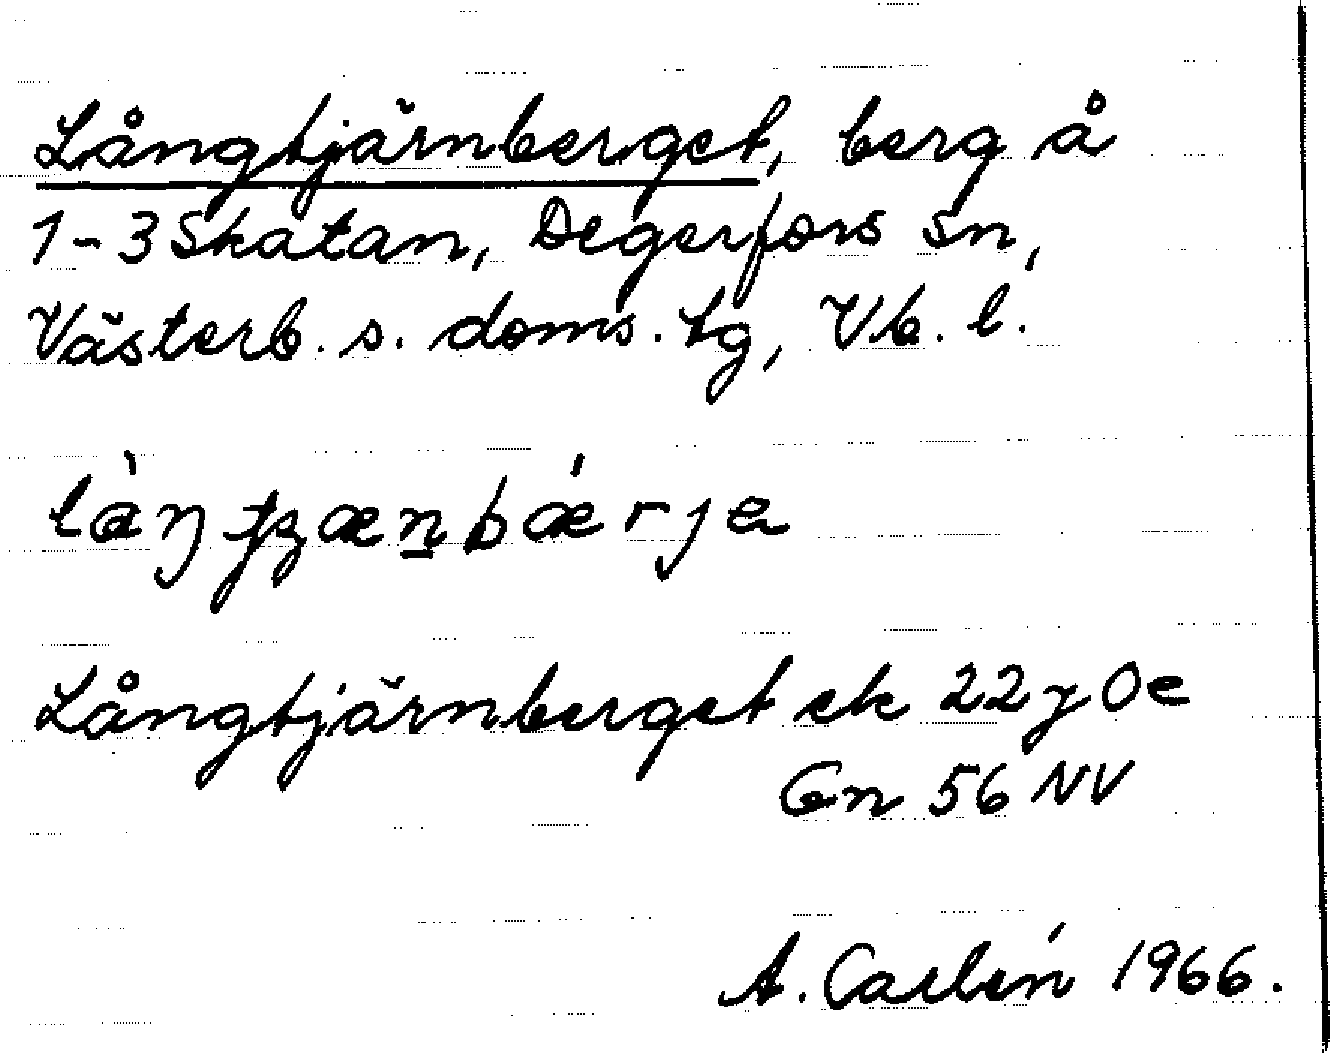 Långtjärnberget, berg å
1-3 Skatan, Degerfors sn,
Västerb. s. doms. tg, Vb. l.
Långtjärnberget ek 22 y 0 e
Gn 56 NV
A. Carlén 1966.